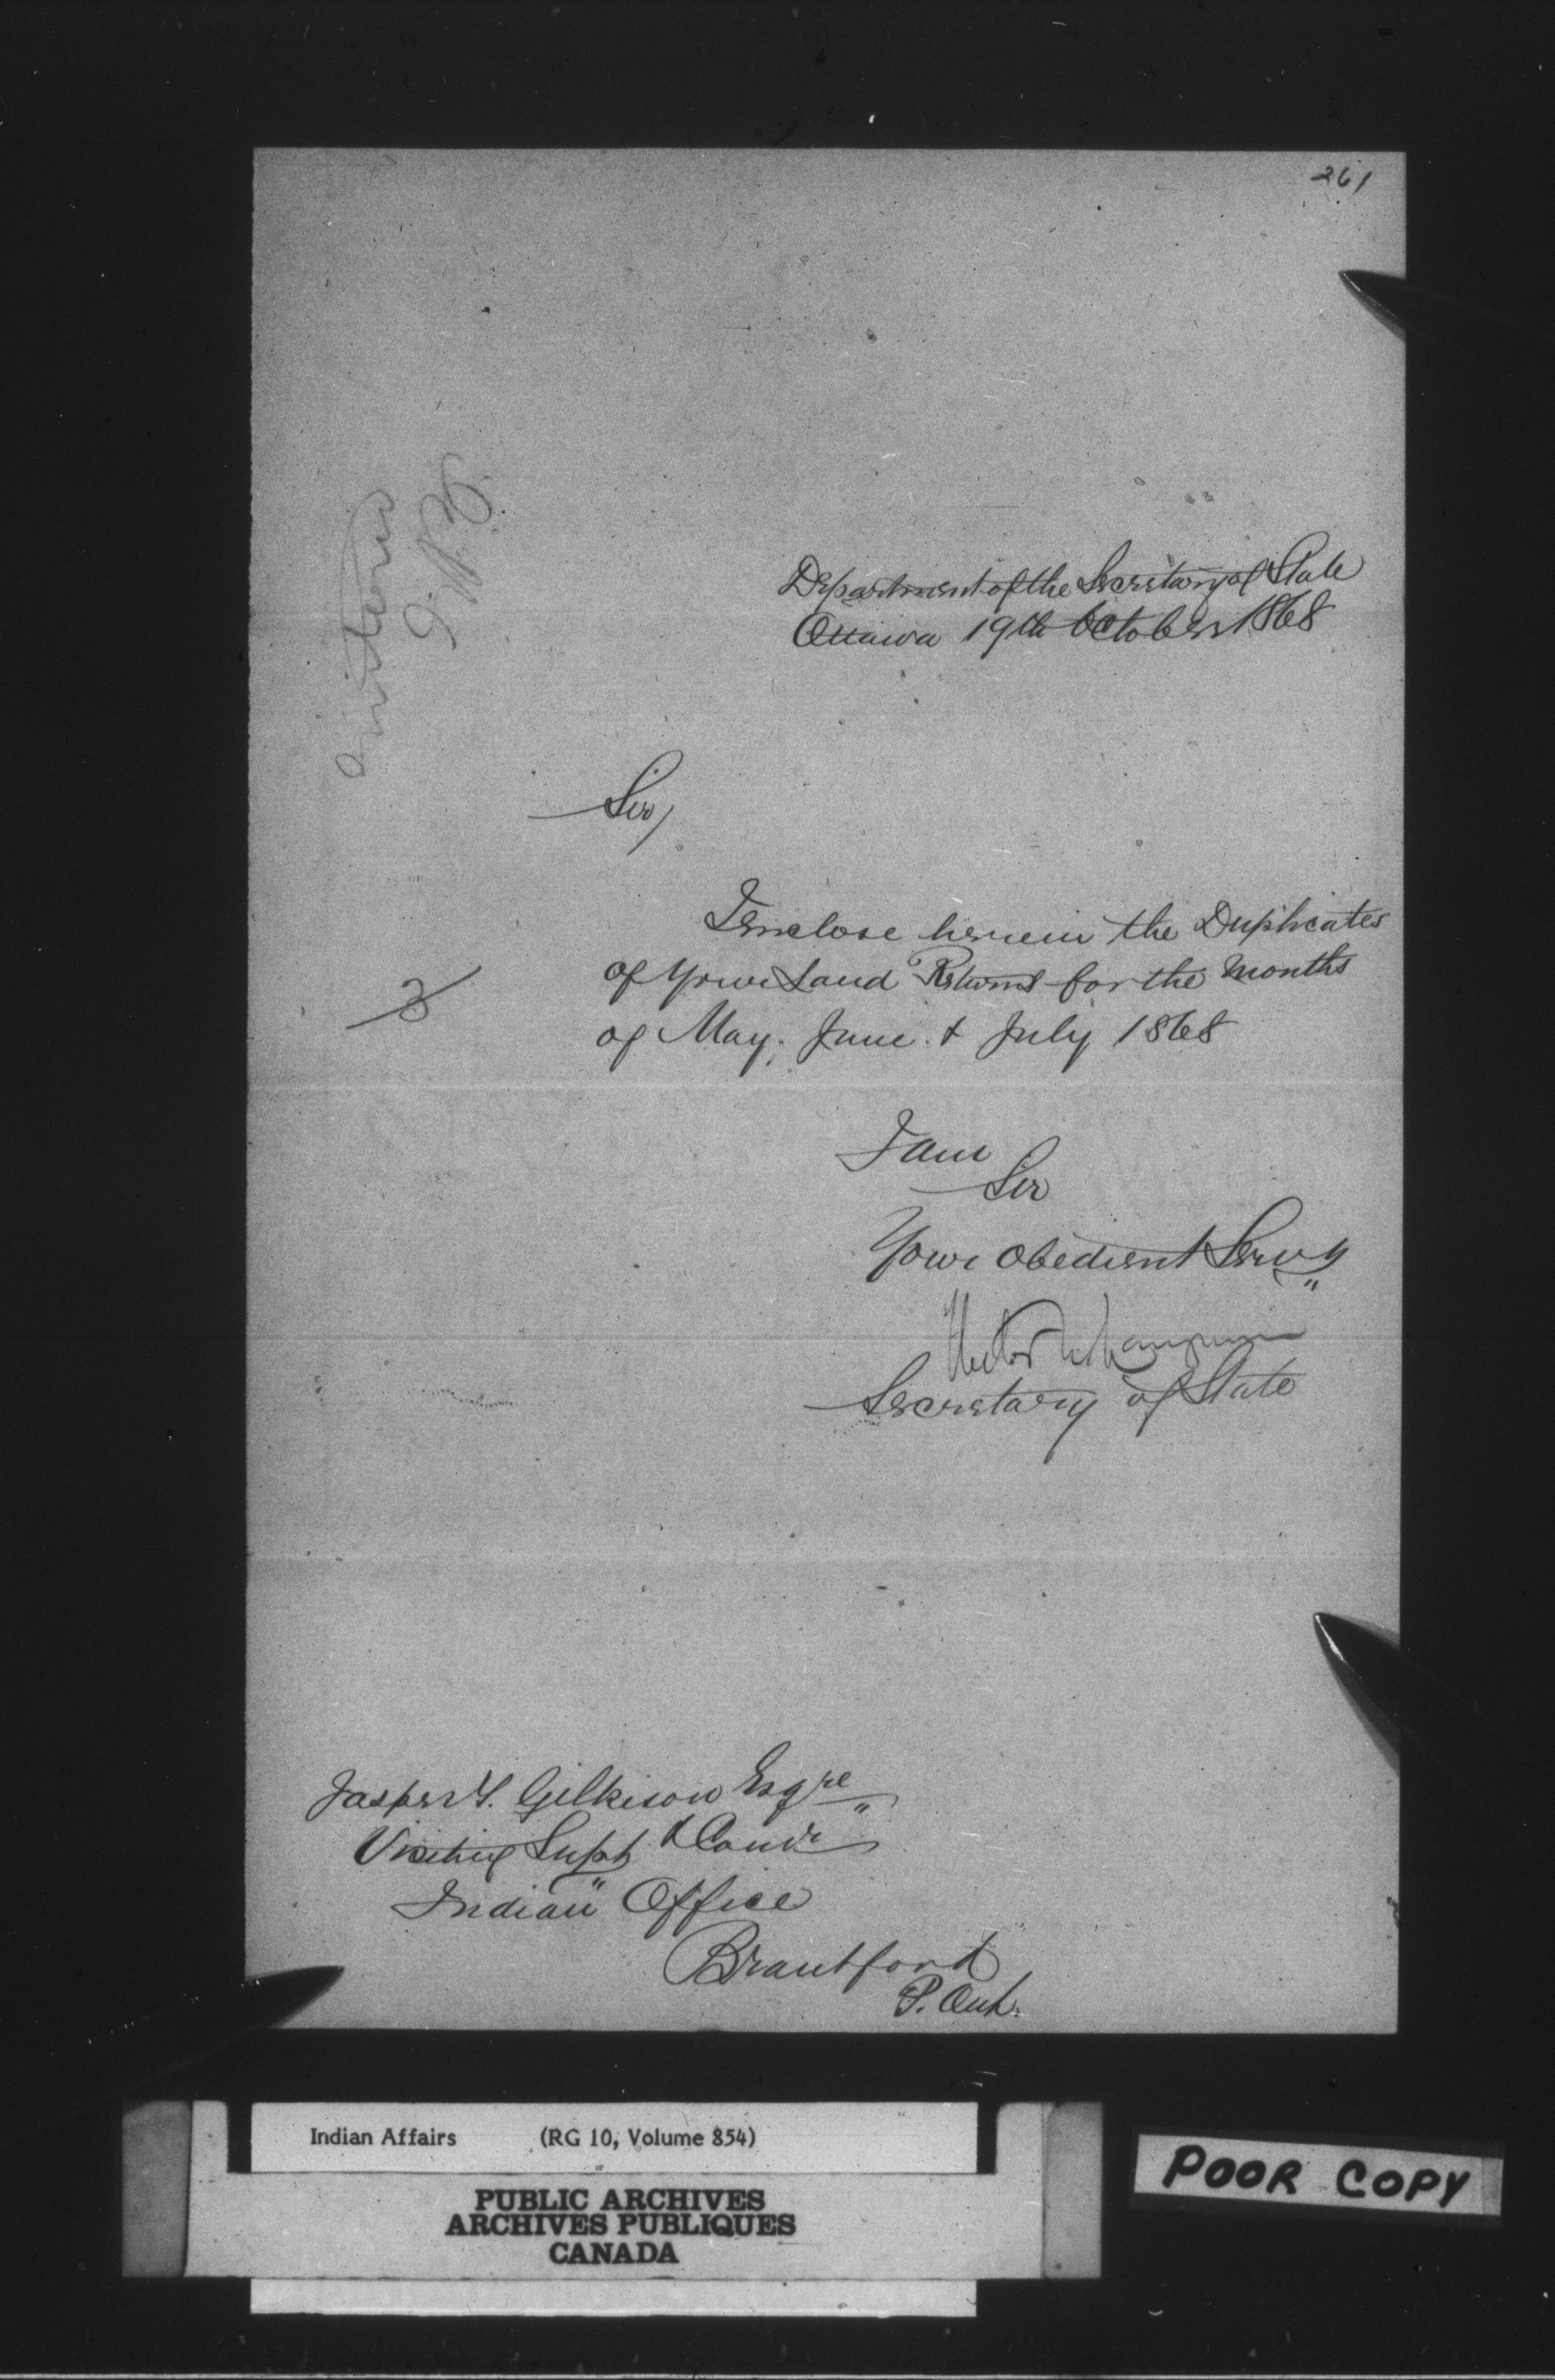 261
Department of the Secretary of State
Ottawa 19th October 1868
Sir,
I enclose herein the Duplicates
of your Land Returns for the months
3
of May, June & July 1868
I am
Sir
Your obedient Servt
Hector L. Langevin
Secretary of State
Jasper T. Gilkison Esqre
Visiting Supt & Comr
Indian Office
Brantford
P. Ont.
Indian Affairs (RG 10, Volume 854)
PUBLIC ARCHIVES
ARCHIVES PUBLIQUES
CANADA
POOR COPY